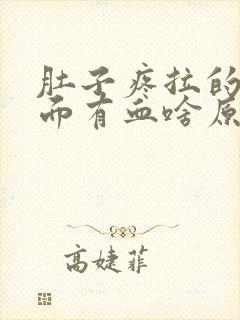 肚子疼拉的
而有血啥原
高婕菲